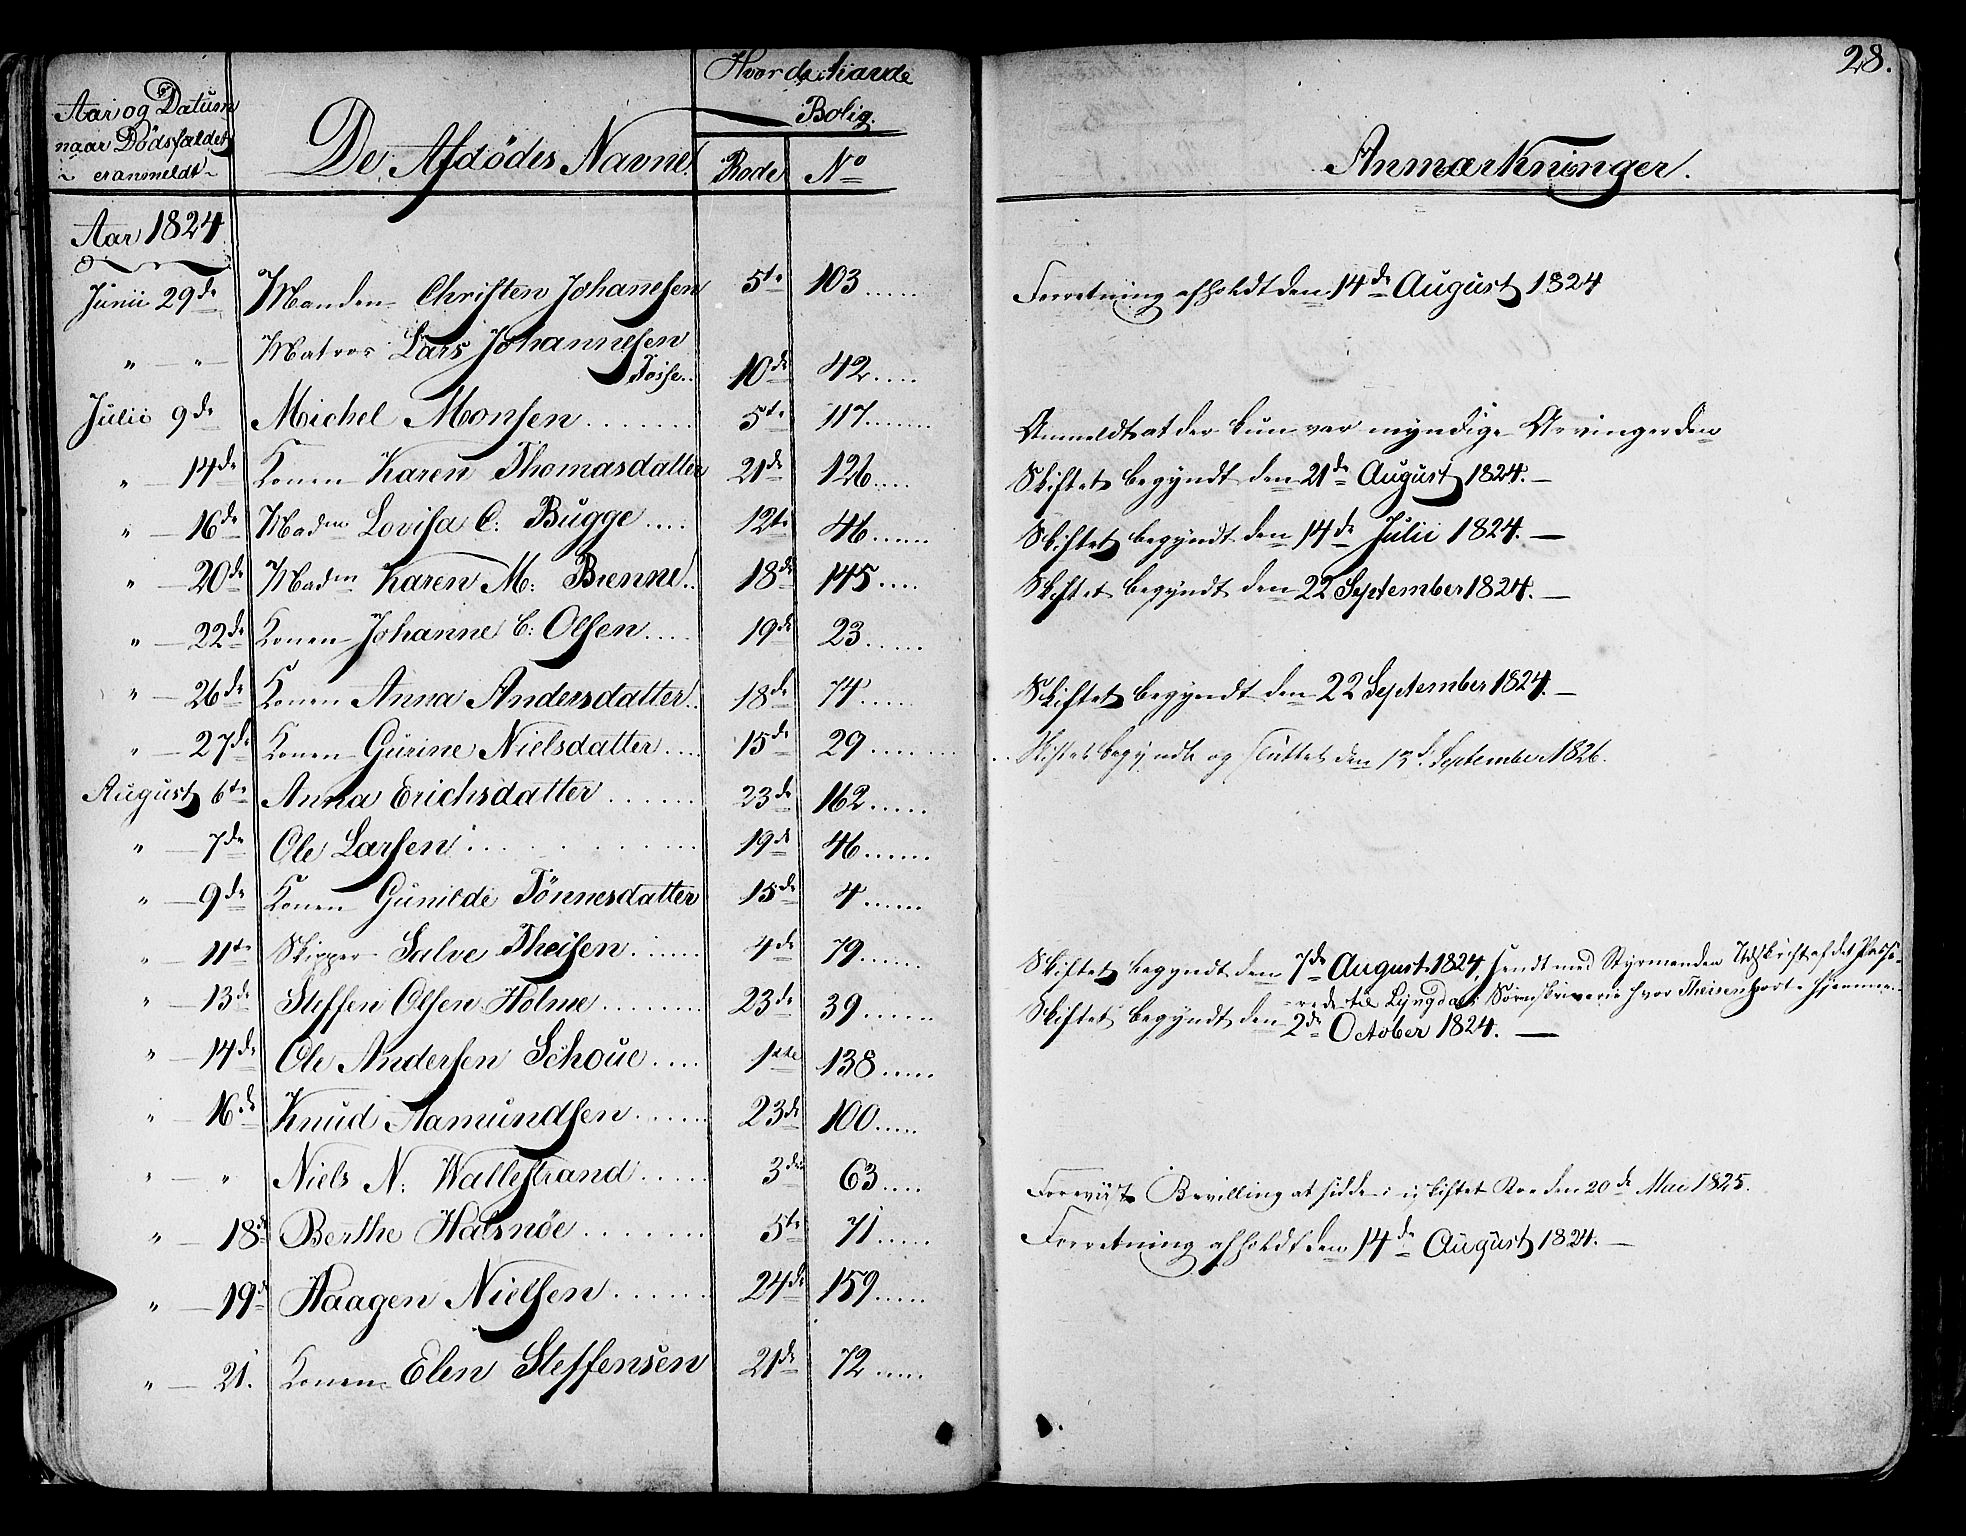 28.
Aar og Datum
naar Dödsfaldet
er anmeldt
De Afdödes Navne.
Hvor de havde
Bolig.
Rode No
Anmærkninger.
Aar 1824
Junii 29de Manden Christen Johannesen 5te 103..... Forretning afholdt den 14de August 1824
" — " — Matros Lars Johannesen
Tosse.. 10de 42.....
Julii 9de Michel Monsen....... 5te 117....... Anmeldt at der kun var myndige Arvinger den
" — 14de Konen Karen Thomasdatter 21de 126.... Skiftet begyndt den 21de August 1824. —
" — 16de Madm Lovisa C: Bugge.... 12te 46...... Skiftet begyndt den 14de Julii 1824. —
" — 20de Madm Karen M: Bienne.. 18de 145.... Skiftet begyndt den 22 September 1824. —
" — 22de Konen Johanne C: Olsen.... 19de 23......
" — 26de Konen Anna Andersdatter.. 18de 74..... Skiftet begyndt den 22 September 1824. —
" — 27de Konen Gurine Nielsdatter.... 15de 29........ Skiftet begyndt og sluttet den 13de September 1826.
August 6te Anna Erichsdatter...... 23de 162......
" — 7de Ole Larsen.......... 19de 46......
" — 9de Konen Gunilde Tönnesdatter 15de 4......
" — 11te Skipper Salve Theisen...... 4de 79...... Skiftet begyndt den 7de August 1824, sendt med Styrmanden Udskrift af det Passe-
rede til Lyngdals Sorenskriverie hvor Theisen hørte hjemme.
" — 13de Steffen Olsen Holme....... 23de 39....... Skiftet begyndt den 2de October 1824. —
" — 14de Ole Andersen Schoue..... 1ste 138.....
" — 16de Knud Aamundsen...... 23de 100.....
" — " Niels N: Wallestrand..... 3die 63.... Foreviist Bevilling at sidde i uskiftet Boe den 20de Mai 1825.
" — 18de Berthe Halsnöe........ 5te 71..... Forretning afholdt den 14de August 1824. —
" — 19de Haagen Nielsen...... 24de 159.....
" — 21. Konen Elen Steffensen 21de 72.....